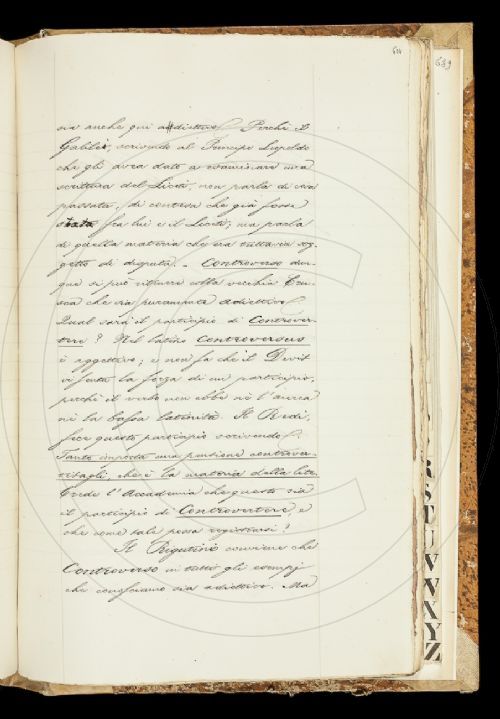 624
639
sia anche qui addiettivo. Perchè il
Galilei, scrivendo al Principe Leopoldo
che gli avea dato a esaminare una
scrittura del Liceti, non parla di cosa
passata, di contesa che già fosse
stata fra lui e il Liceti; ma parla
di quella materia che era tuttavia sog-
getto di disputa. - Controverso dun-
que si può ritenere colla vecchia Cru-
sca che sia puramente addiettivo.
Qual sarà il participio di Controver-
tere? Nel latino Controversus
è aggettivo; e non fa che il Devit
vi senta la forza di un participio,
perchè il verbo non ebbe nè l'aurea
nè la bassa latinità. Il Redi,
fece questo participio scrivendo:
Tanto importa una porzione controver-
titagli, che è la materia della lite.
Crede l'Accademia che questo sia
il participio di Controvertere, e
che come tale possa registrarsi?
Il Rigutini conviene che
Controverso in tutti gli esempj
che conosciamo sia addiettivo. Ma
R
S
T
U
V
W
X
Y
Z